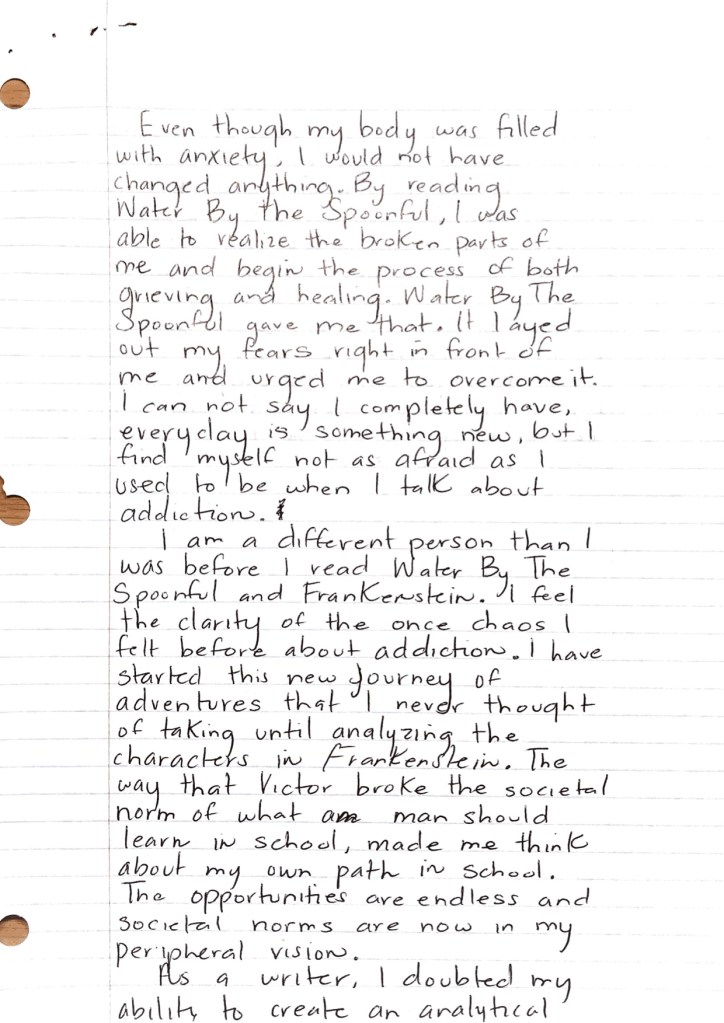 Even though my body was filled
with anxiety, I would not have
changed anything. By reading
Water By The Spoonful, I was
able to realize the broken parts of
me and begin the process of both
grieving and healing. Water By The
Spoonful gave me that. It layed
out my fears right in front of
me and urged me to overcome it.
I can not say I completely have,
everyday is something new, but I
find myself not as afraid as I
used to be when I talk about
addiction.
I am a different person than I
was before I read Water By The
Spoonful and Frankenstein. I feel
the clarity of the once chaos I
felt before about addiction. I have
started this new journey of
adventures that I never thought
of taking until analyzing the
characters in Frankenstein. The
way that Victor broke the societal
norm of what a man should
learn in school, made me think
about my own path in school.
The opportunities are endless and
societal norms are now in my
peripheral vision.
As a writer, I doubted my
ability to create an analytical